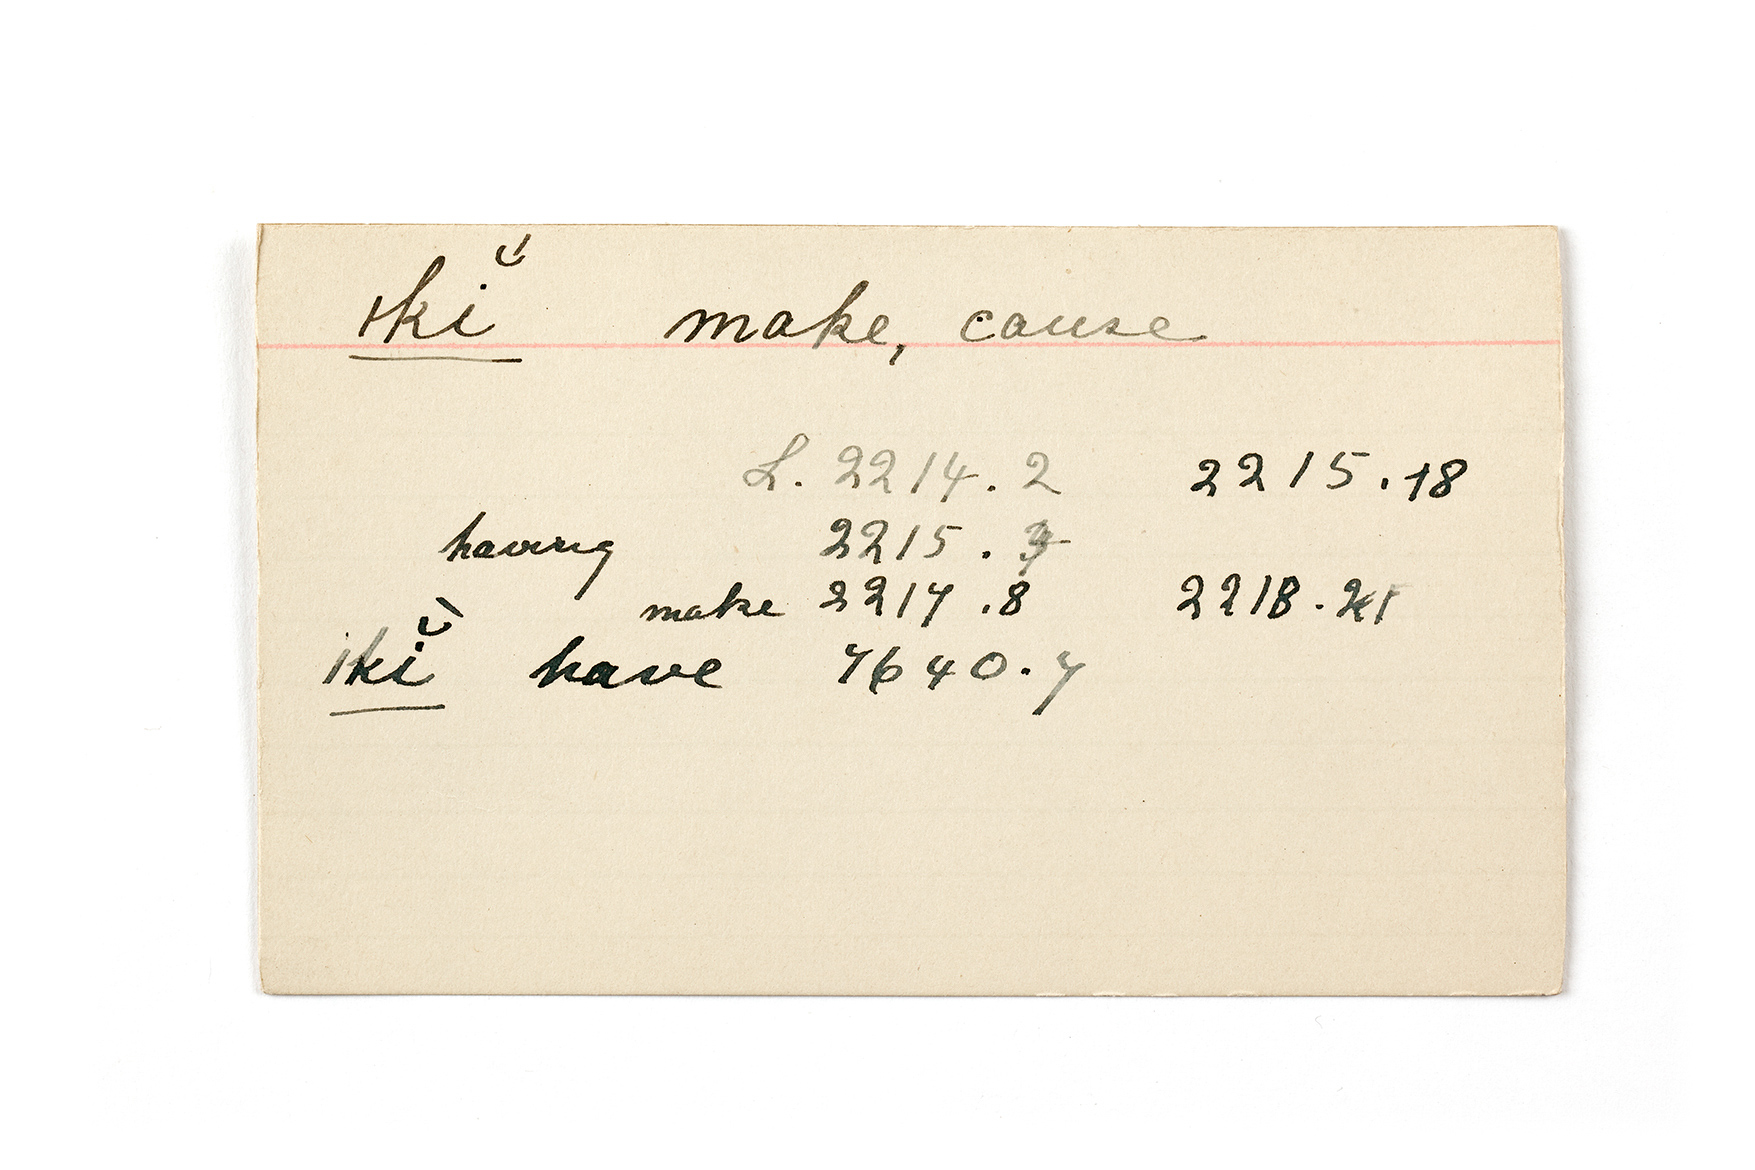 ıkĭ make, cause
L. 2214.2 2215.18
having 2215.
make 2217.8 2218.
ikĭ have 7640.7